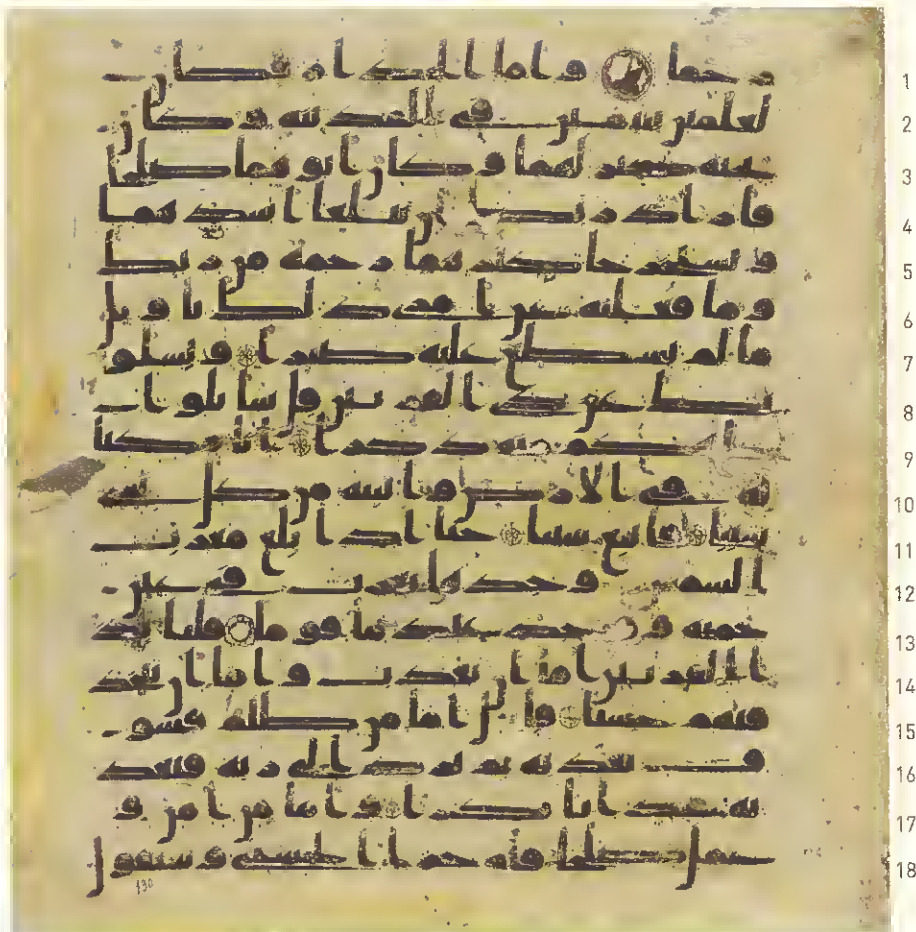 رحما واما الجدار فكان 1
لغلمين يتيمين في المدينه وكان 2
تحته كنز لهما وكان ابوهما صلحا 3
فاراد ربك ان يبلغا اشدهما 4
ويستخرجا كنزهما رحمه من ربك 5
وما فعلته عن امري ذلك تاويل 6
ما لم تسطع عليه صبرا ويسلو 7
نك عن ذي القرنين قل ساتلوا 8
عليكم منه ذكرا انا مكنا 9
له في الارض واتينه من كل شي 10
سببا فاتبع سببا حتا اذا بلغ مغرب 11
الشمس وجدها تغرب في عين 12
حميه ووجد عندها قوما قلنا يذ 13
ا القرنين اما ان تعذب واما ان تتخذ 14
فيهم حسنا قال اما من ظلم فسو 15
ف نعذبه ثم يرد الى ربه فيعذ 16
به عذابا نكرا واما من امن و 17
عمل صلحا فله جزا الحسنى وسنقول 18
130